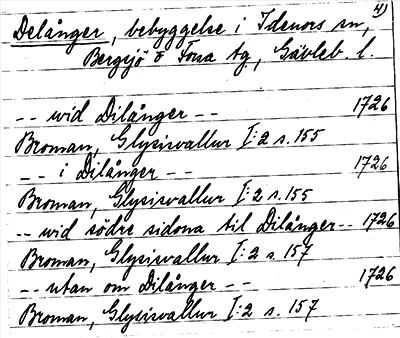 4)
Delånger, bebyggelse i Idenors sn,
Bergsjö o Forsa tg, Gävleb. l.
-- wid Dilånger -- 1726
Broman, Glysisvallur I:2 s. 155
-- i Dilånger -- 1726
Broman, Glysisvallur I:2 s. 155
-- wid södre sidona til Dilånger -- 1726
Broman, Glysisvallur I:2 s. 157
-- utan om Dilånger -- 1726
Broman, Glysisvallur I:2 s. 157